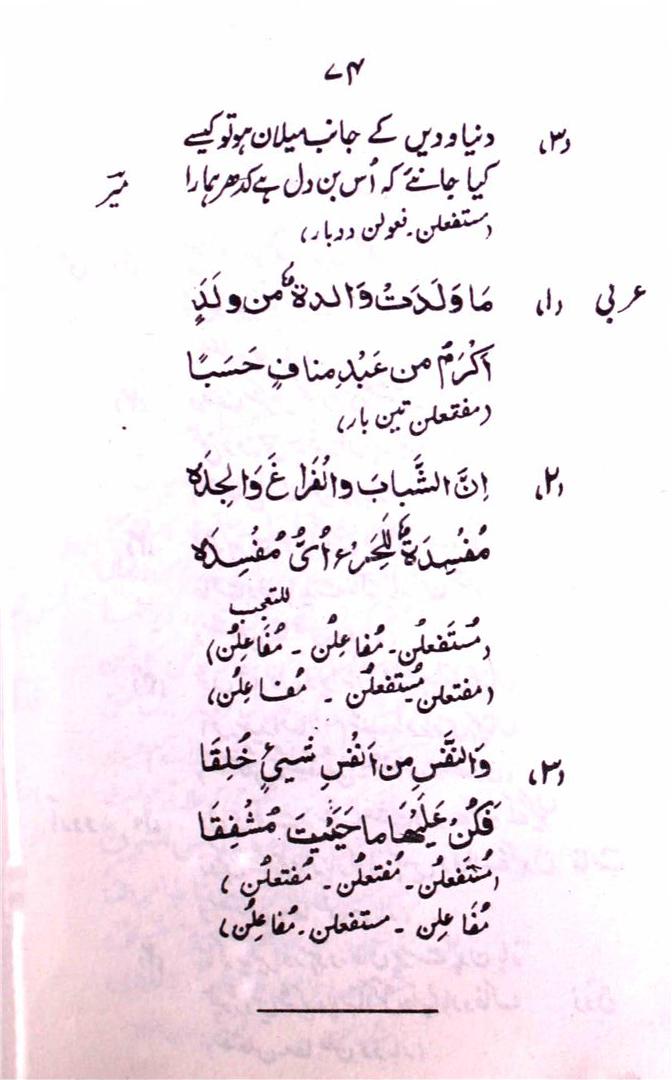 ۷۴
(۳) دنیا و دیں کے جانب میلان ہو تو کیسے
کیا جانئے کہ اُس بن دل ہے کدھر ہمارا میرؔ
(مستفعلن۔ فعولن دوبار)
عربی (۱) مَا وَلَدَتْ وَالدة من ولَدٍ
اَکْرَمَ من عَبْدِ منافٍ حَسَبًا
(مفتعلن تین بار)
(۲) اِنَّ الشَّبابَ والْفَراغَ وَالجِدَہ
مُفْسِدَةٌ للمَرْءِ اَیُّ مُفْسِدَہ
للتعجب
(مُستَفعلن۔ مُفاعِلُن ۔ مُفَاعِلُن)
(مفتعلن مُستفعلُن ۔ مُفاعِلُن)
(۳) وَالنَّفْسِ مِن اَنْفُسِ شَیئٍ خُلِقَا
فَکُنْ عَلَیْهَا ما حَیَیْتَ مُشْفِقَا
(مُستَفعلُن۔ مُفتعلُن۔ مُفتعلُن)
مُفاعلِن ۔ مستفعلن۔ مُفاعِلُن)